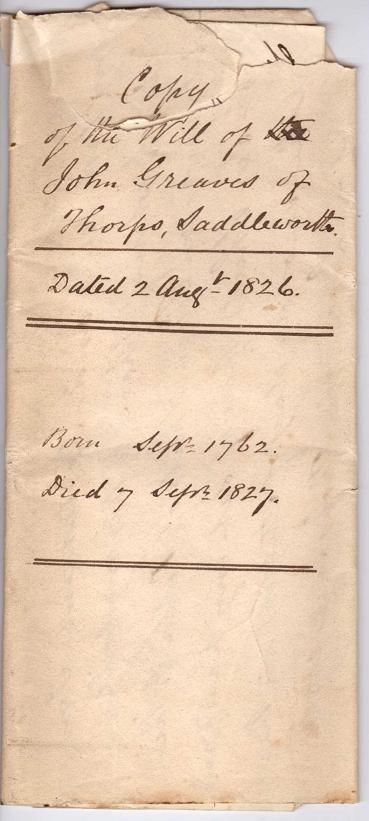 Copy
of the Will of
John Greaves of
Thorps, Saddleworth.
Dated 2 Augt 1826.
Born Sepr 1762.
Died 7 Sepr 1827.